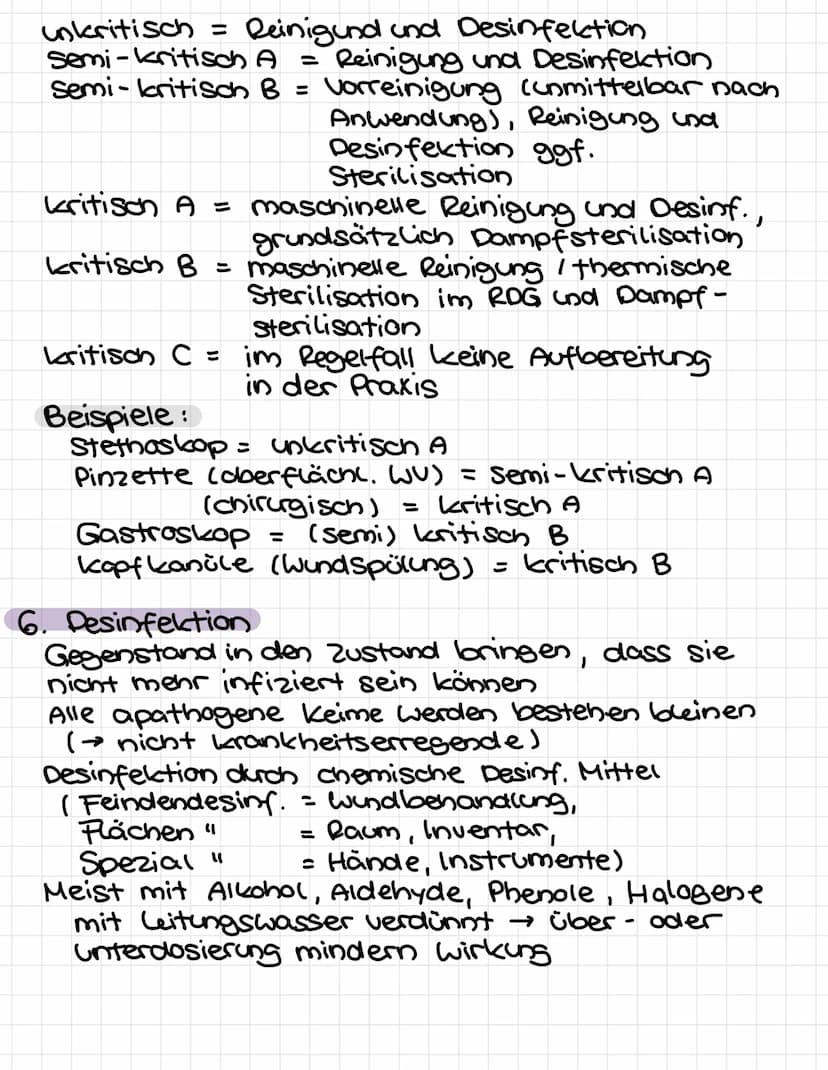 unkritisch = Reinigund und Desinfektion
semi-kritisch A = Reinigung und Desinfektion
semi-kritisch B = Vorreinigung (unmittelbar nach
Anwendung), Reinigung und
Desinfektion ggf.
Sterilisation
kritisch A = maschinelle Reinigung und Desinf.,
grundsätzlich Dampfsterilisation
kritisch B = maschinelle Reinigung / thermische
Sterilisation im RDG und Dampf-
sterilisation
kritisch C = im Regelfall keine Aufbereitung
in der Praxis
Beispiele:
Stethoskop = unkritisch A
Pinzette (oberflächl. WV) = semi-kritisch A
(chirurgisch) = kritisch A
Gastroskop = (semi) kritisch B
Kopfkanüle (Wundspülung) = kritisch B
6. Desinfektion
Gegenstand in den Zustand bringen, dass sie
nicht mehr infiziert sein können
Alle apathogene Keime werden bestehen bleinen
(→ nicht krankheitserregende)
Desinfektion durch chemische Desinf. Mittel
(Feindendesinf. = Wundbehandlung,
Flächen " = Raum, Inventar,
Spezial " = Hände, Instrumente)
Meist mit Alkohol, Aldehyde, Phenole, Halogene
mit Leitungswasser verdünnt → über- oder
unterdosierung mindern Wirkung